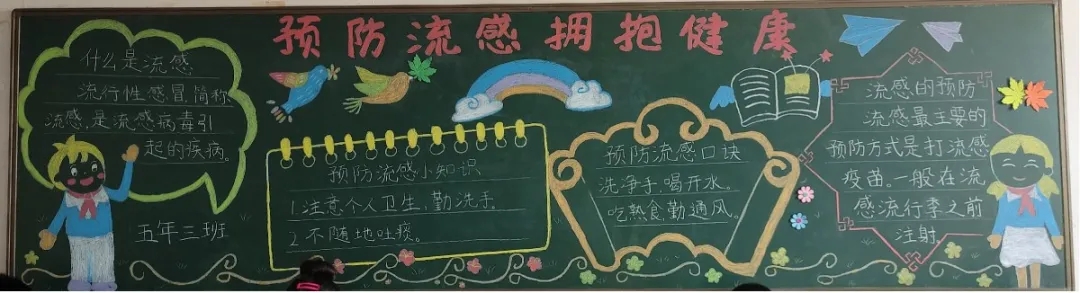 预防流感拥抱健康
什么是流感
流行性感冒,简称
流感,是流感病毒引
起的疾病。
五年三班
预防流感小知识
1.注意个人卫生,勤洗手。
2.不随地吐痰。
预防流感口诀
洗净手,喝开水。
吃熟食勤通风。
流感的预防
流感最主要的
预防方式是打流感
疫苗。一般在流
感流行季之前
注射